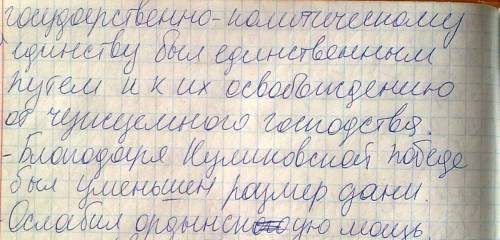 государственно-политическому
единству был единственным
путем и к их освобождению
от чужеземного господства.
- Благодаря Куликовской победе
был уменьшен размер дани.
Ослабил ордынскую мощь